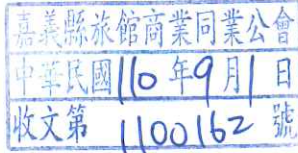 嘉義縣旅館商業同業公會
中華民國110年9月1日
收文第1100162號